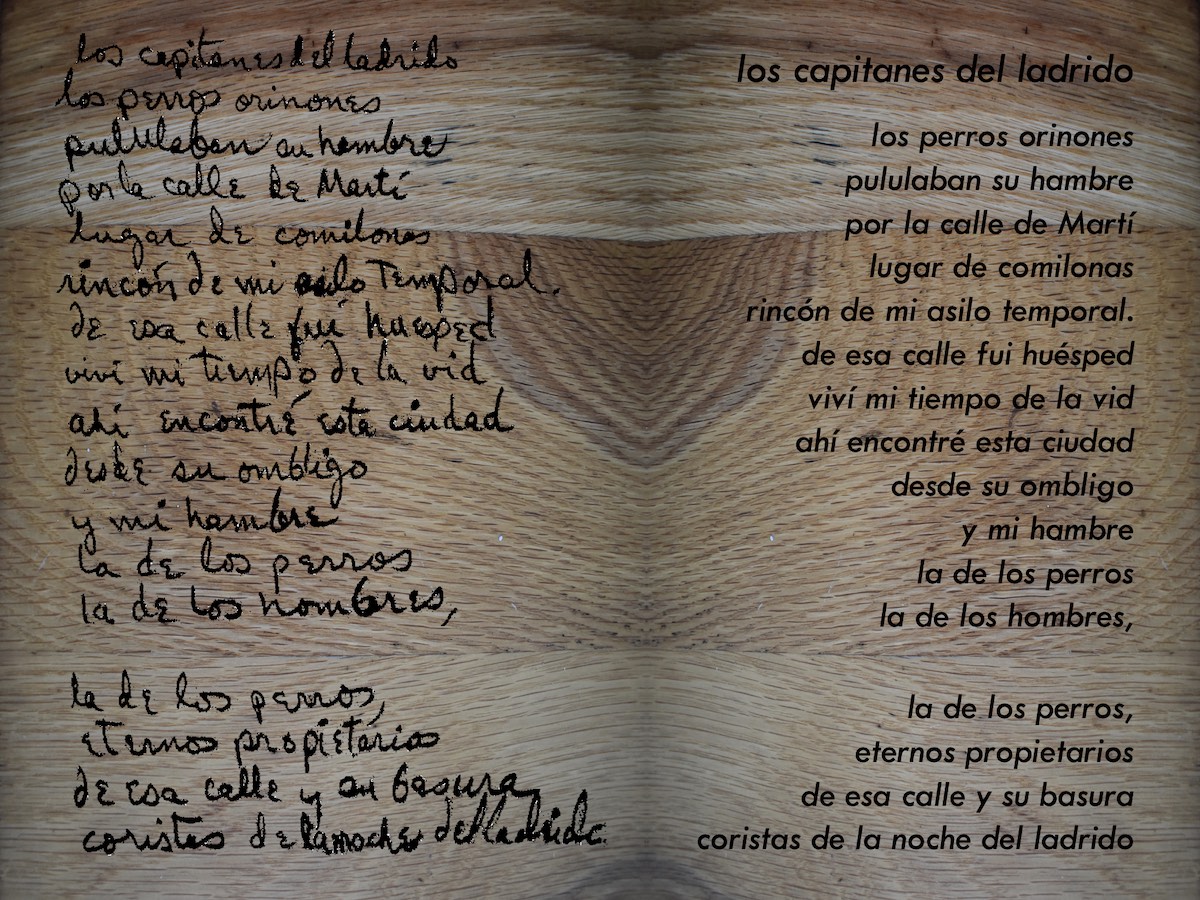 los capitanes del ladrido
los perros orinones
pululaban su hambre
por la calle de Martí
lugar de comilonas
rincón de mi asilo temporal.
de esa calle fui huésped
viví mi tiempo de la vid
ahí encontré esta ciudad
desde su ombligo
y mi hambre
la de los perros
la de los hombres,
la de los perros,
eternos propietarios
de esa calle y su basura
coristas de la noche del ladrido
los capitanes del ladrido
los perros orinones
pululaban su hambre
por la calle de Martí
lugar de comilonas
rincón de mi asilo temporal.
de esa calle fui huésped
viví mi tiempo de la vid
ahí encontré esta ciudad
desde su ombligo
y mi hambre
la de los perros
la de los hombres,
la de los perros,
eternos propietarios
de esa calle y su basura
coristas de la noche del ladrido